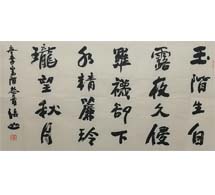 玉階生白
露夜久侵
羅襪卻下
水精簾玲
瓏望秋月